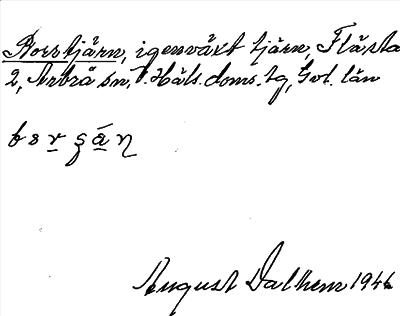 Borrtjärn, igenväxt tjärn, Flästa
2, Arbrå sn, V. Häls. doms. tg, Gvl. län
August Dalhem 1946